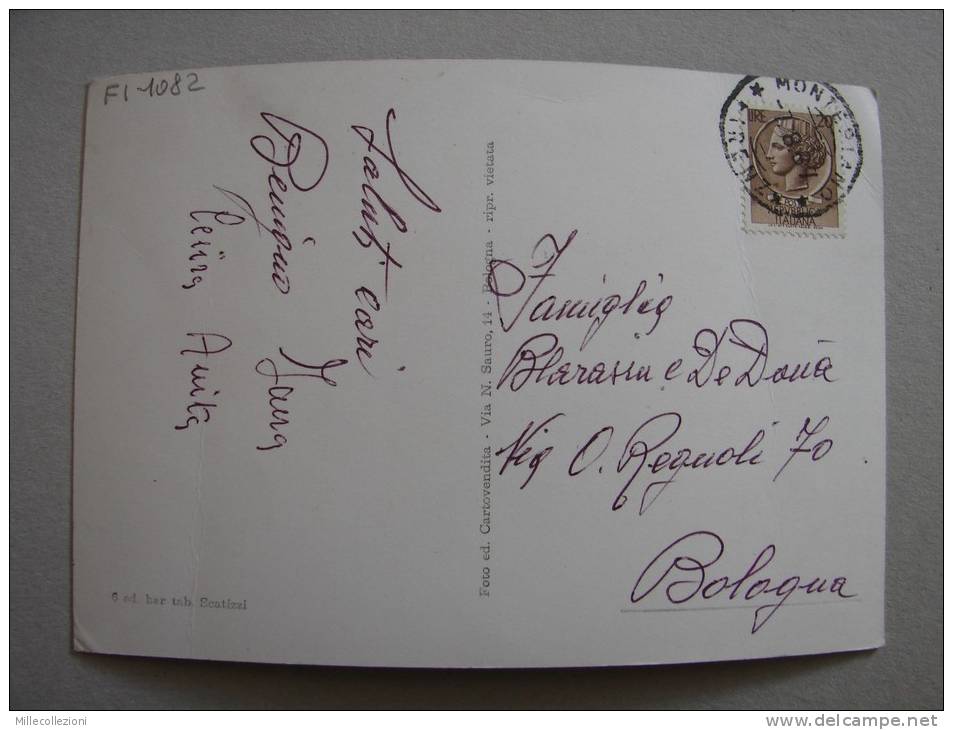 FI-1082
Saluti cari
Benigno Iana
Anita
6 ed. bar tab. Scatizzi
Foto ed. Cartovendita - Via N. Sauro, 14 - Bologna - ripr. vietata
LIRE 20
REPUBBLICA
ITALIANA
MONTEBIANO
FIRENZE
Famiglia
Blarasin e De Donà
Via O. Regnoli 70
Bologna
Millecollezioni
www.delcampe.net